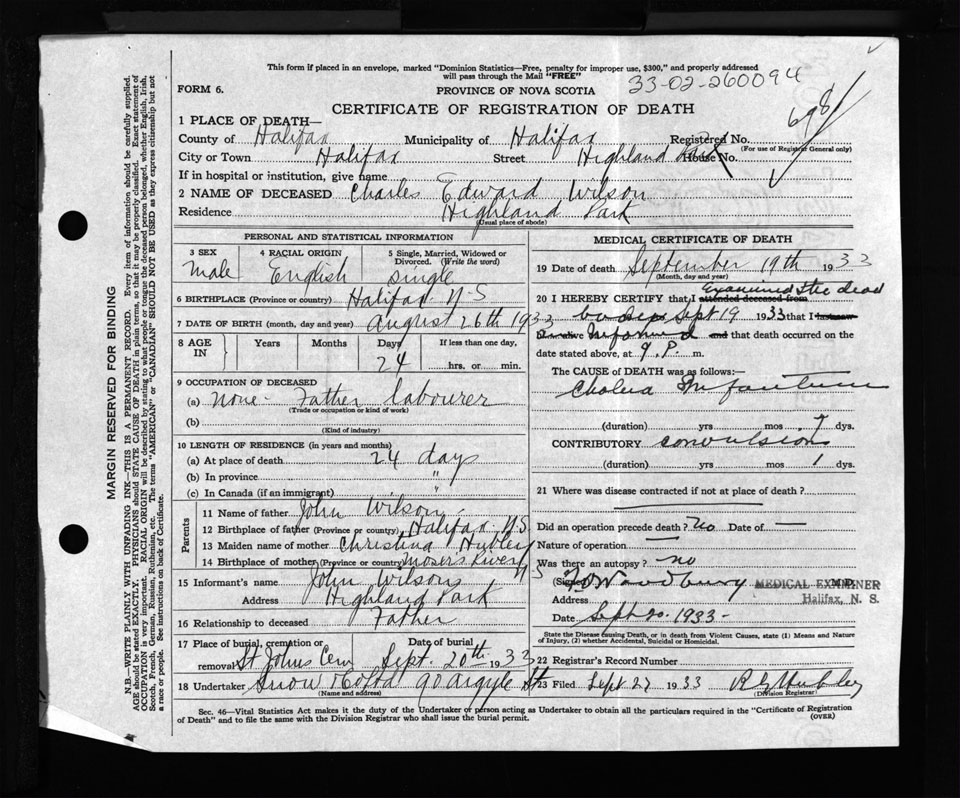 This form if placed in an envelope, marked "Dominion Statistics—Free, penalty for improper use, $300," and properly addressed
will pass through the Mail "FREE"
33-02-260094
FORM 6.
PROVINCE OF NOVA SCOTIA
CERTIFICATE OF REGISTRATION OF DEATH
698
1 PLACE OF DEATH—
County of Halifax Municipality of Halifax Registered No.
(For use of Registrar General only)
City or Town Halifax Street Highland Park House No.
If in hospital or institution, give name
2 NAME OF DECEASED Charles Edward Wilson
Residence Highland Park
(Usual place of abode)
PERSONAL AND STATISTICAL INFORMATION
3 SEX 4 RACIAL ORIGIN 5 Single, Married, Widowed or
Divorced. (Write the word)
Male English single
6 BIRTHPLACE (Province or country) Halifax N-S
7 DATE OF BIRTH (month, day and year) August 26th 1933
8 AGE IN Years Months Days If less than one day,
24 hrs. or min.
9 OCCUPATION OF DECEASED
(a) None - Father labourer
(Trade or occupation or kind of work)
(b)
(Kind of industry)
10 LENGTH OF RESIDENCE (in years and months)
(a) At place of death 24 days
(b) In province "
(c) In Canada (if an immigrant) "
Parents
11 Name of father John Wilson
12 Birthplace of father (Province or country) Halifax N.S.
13 Maiden name of mother Christina Hubley
14 Birthplace of mother (Province or country) Mosers River N S
15 Informant's name John Wilson
Address Highland Park
16 Relationship to deceased Father
17 Place of burial, cremation or Date of burial
removal St Johns Cem Sept. 20th 1933
18 Undertaker Snow & Co Ltd 90 Argyle St
(Name and address)
MEDICAL CERTIFICATE OF DEATH
19 Date of death September 19th 1933
(Month, day and year)
Examined the dead
20 I HEREBY CERTIFY that I attended deceased from
body Sept 19 1933 that I last saw
Informed and that death occurred on the
date stated above, at 9. P. m.
The CAUSE of DEATH was as follows:
Cholera Infantum
(duration) yrs mos 7 dys.
CONTRIBUTORY convulsions
(duration) yrs mos 1 dys.
21 Where was disease contracted if not at place of death?
Did an operation precede death? no Date of —
Nature of operation —
Was there an autopsy? no
(Signed) Woodbury M.D. MEDICAL EXAMINER
Address Halifax, N. S.
Date Sept 20. 1933-
State the Disease causing Death, or in death from Violent Causes, state (1) Means and Nature
of Injury, (2) whether Accidental, Suicidal or Homicidal.
22 Registrar's Record Number
23 Filed Sept 27 1933 Hubley
(Division Registrar)
Sec. 46—Vital Statistics Act makes it the duty of the Undertaker or person acting as Undertaker to obtain all the particulars required in the "Certificate of Registration
of Death" and to file the same with the Division Registrar who shall issue the burial permit.
(OVER)
MARGIN RESERVED FOR BINDING
N.B.—WRITE PLAINLY WITH UNFADING INK—THIS IS A PERMANENT RECORD. Every item of information should be carefully supplied.
AGE should be stated EXACTLY. PHYSICIANS should STATE CAUSE OF DEATH in plain terms, so that it may be properly classified. Exact statement of
OCCUPATION is very important. RACIAL ORIGIN will be described by stating to what people or tongue the deceased person belonged, whether English, Irish,
Scotch, French, German, Russian, Ruthenian, etc. The terms "AMERICAN" or "CANADIAN" SHOULD NOT BE USED as they express citizenship but not
a race or people. See instructions on back of Certificate.